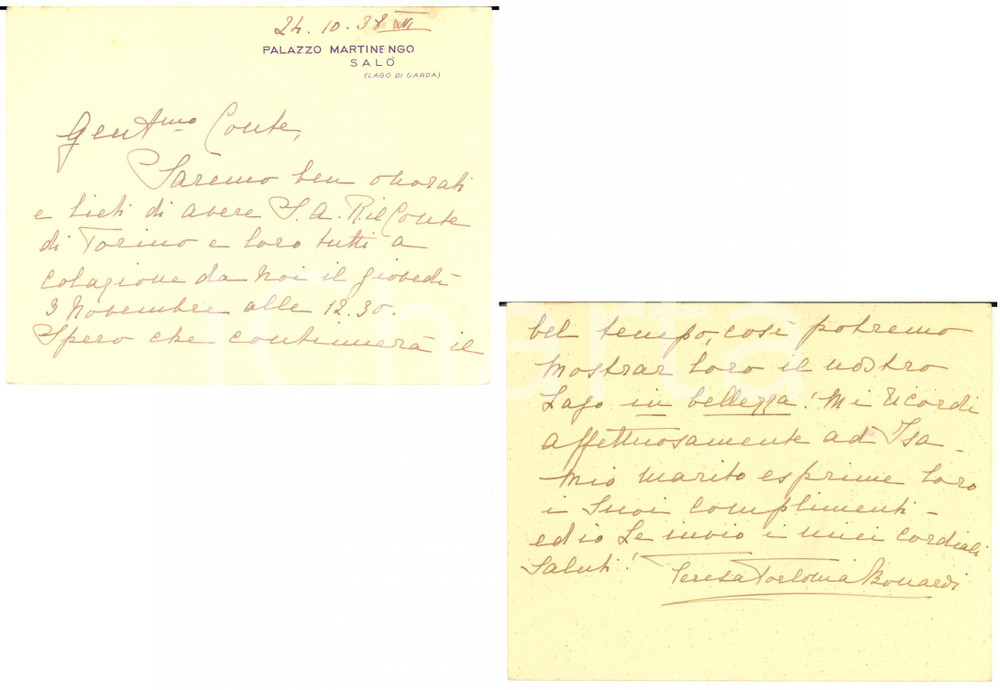 24.10.38 XVI
PALAZZO MARTINENGO
SALÒ
(LAGO DI GARDA)
Gentmo Conte,
Saremo ben onorati
e lieti di avere S.A.R. il Conte
di Torino e loro tutti a
colazione da noi il giovedì
3 Novembre alle 12.30.
Spero che continuerà il
bel tempo, così potremo
mostrar loro il nostro
Lago in bellezza! Mi ricordi
affettuosamente ad Isa -
Mio marito esprime loro
i suoi complimenti -
ed io Le invio i miei cordiali
saluti! Teresa Torlonia Bonardi